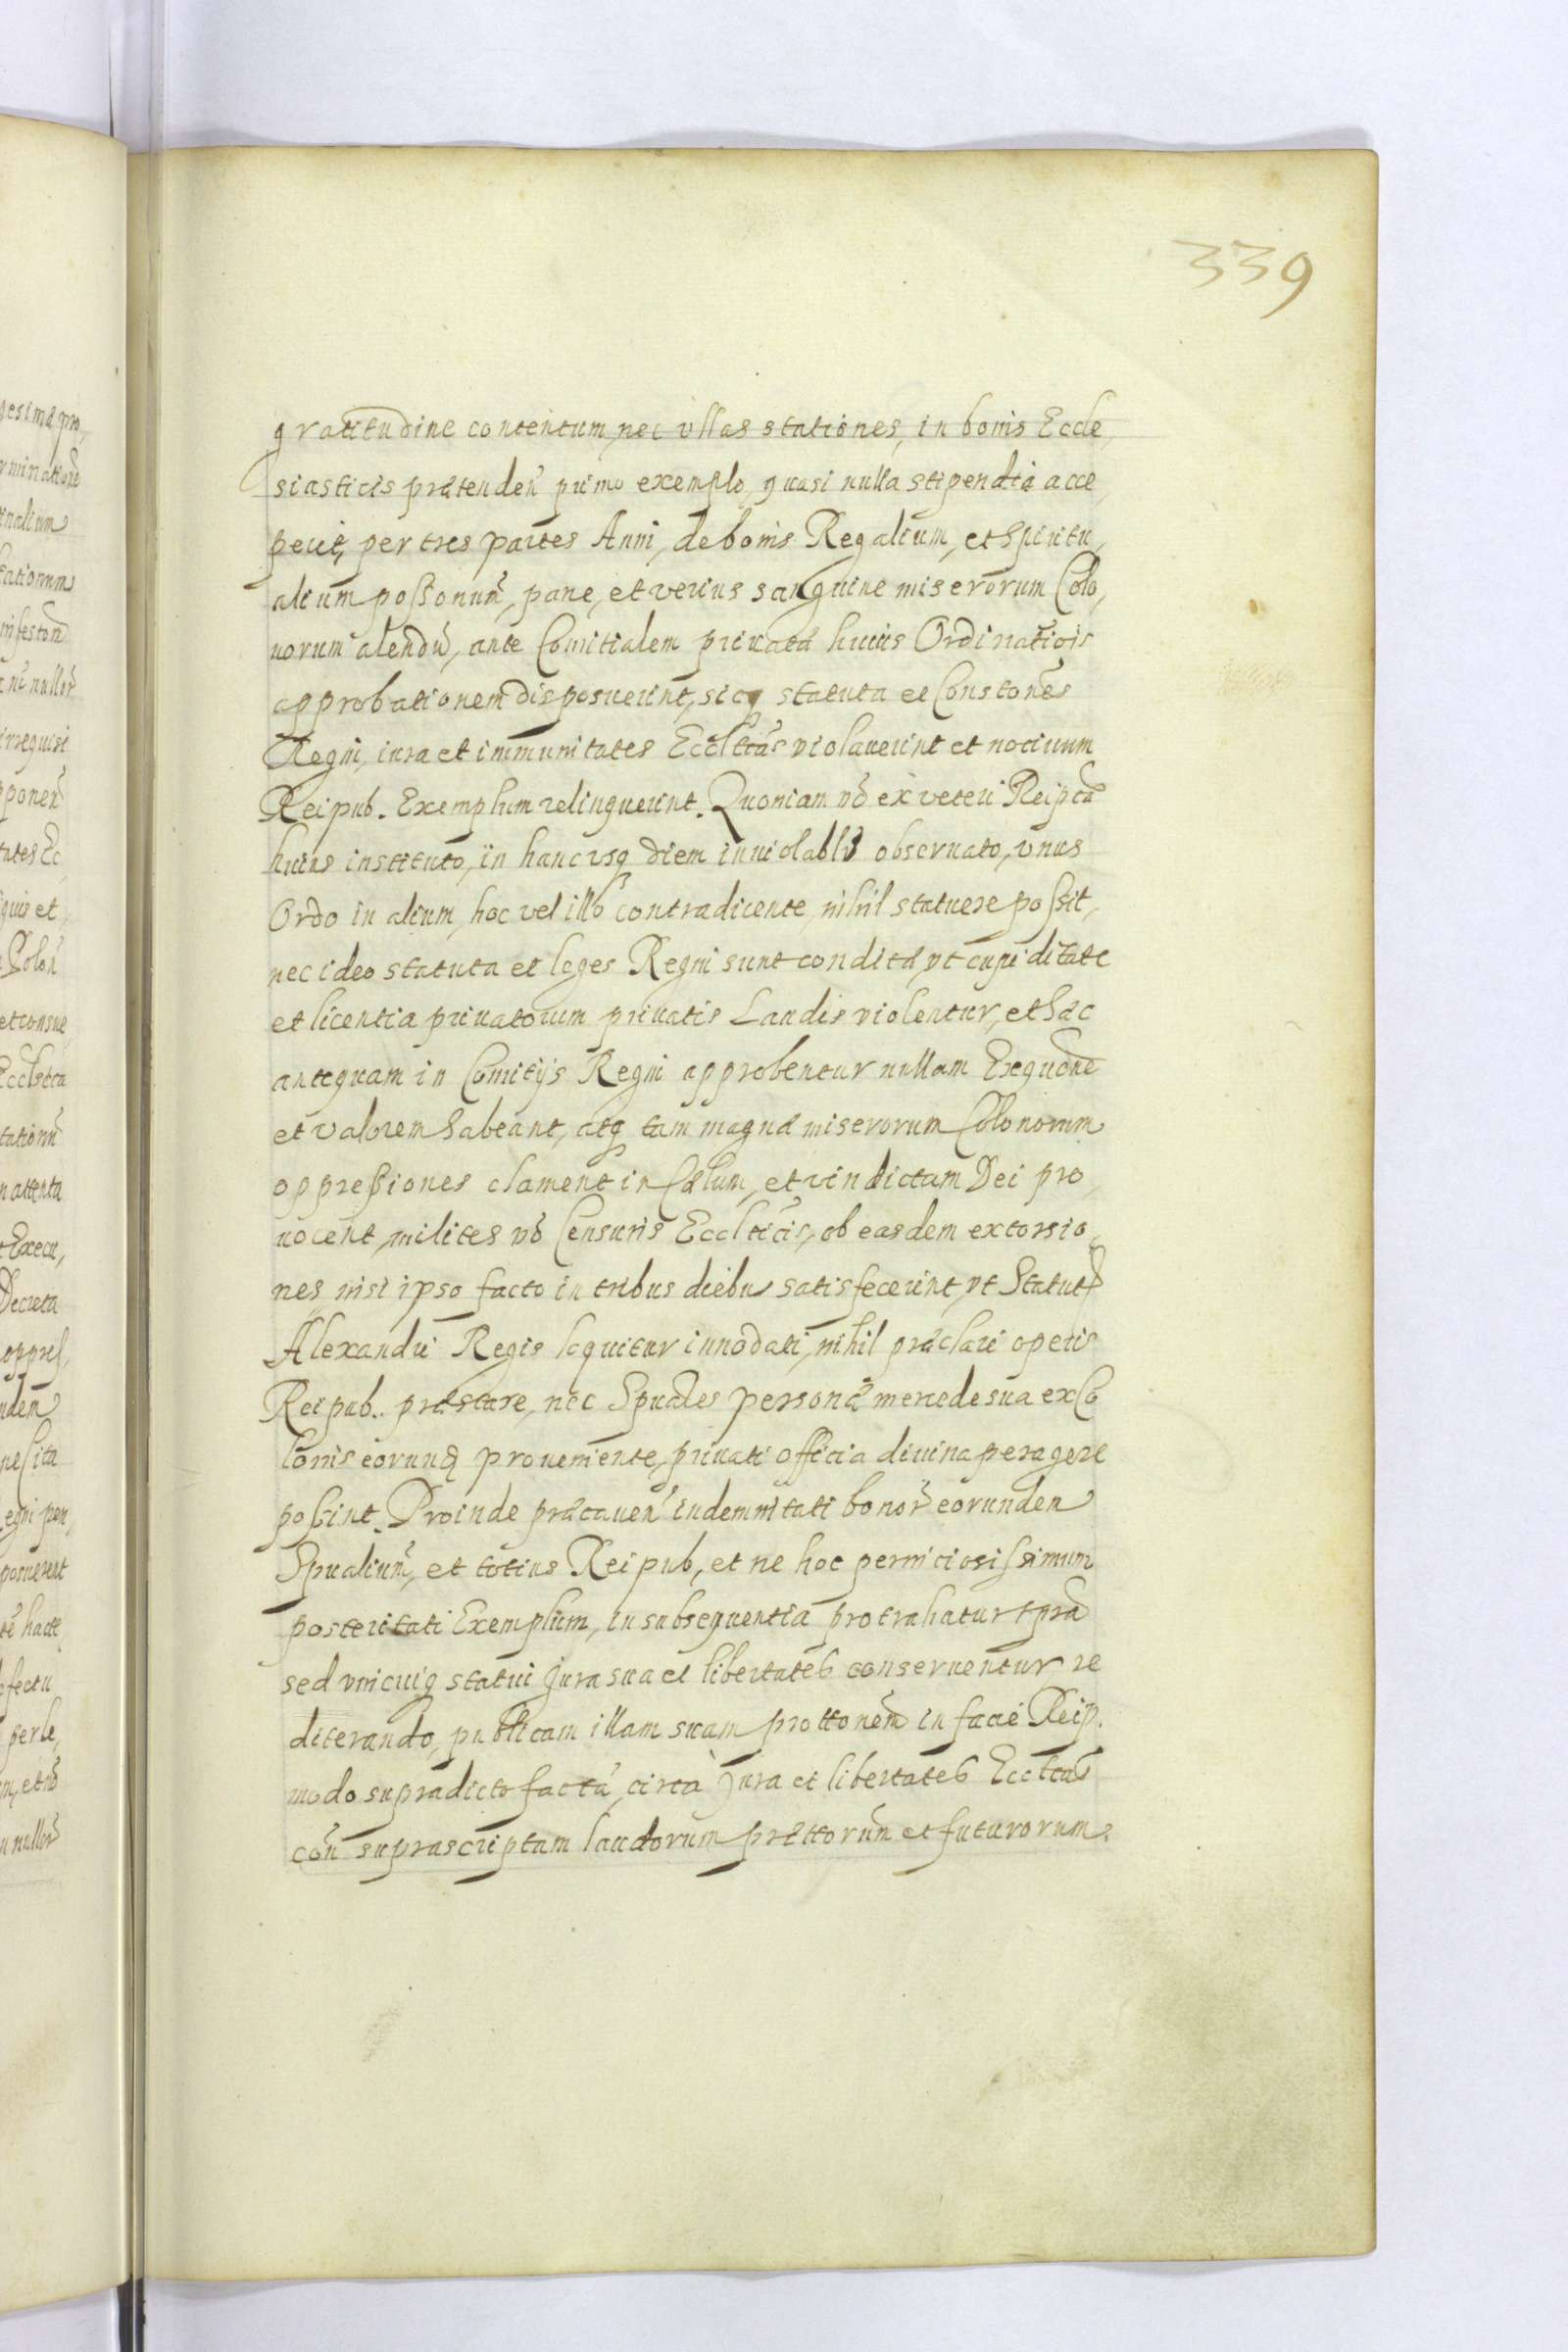 339
gratitudine contentum, nec vllas stationes, in bonis Eccle,
siasticis prætendeñ primo exemplo, quasi nulla stipendia acce,
perit, per tres partes Anni, de bonis Regalium, et Spiritu,
alium poßonum̃, pane, et verius sanguine miserorum Colo,
norum alendũ, ante Comitialem priuatã huius Ordinatiois
approbationem disposuerint, sicq statuta et Constones
Regni, iura et immunitates Eccleticas violauerint et nociuum
Reipub. Exemplum relinquerint. Quoniam vō ex veteri Reipcæ
huius instituto, in hanc vsq diem inuiolablr obseruato, vnus
Ordo in alium, hoc vel illo contradicente, nihil statuere poßit,
nec ideo statuta et leges Regni sunt conditæ, vt cupiditate
et licentia priuatorum priuatis Laudis violentur, et hæc
antequam in Comitijs Regni approbentur nullam Exequõnẽ
et valorem habeant, atq tam magnæ miserorum Colonorum
oppreßiones clament in Cælum, et vindictam Dei pro,
uocent, milites vō Censuris Eccleticis, ob easdem extorsio,
nes, nisi ipso facto in tribus diebus satisfecerint, vt Statut
Alexandri Regis loquitur innodati, nihil præclari operis
Reipub. præstare, nec Spuales personæ mercede sua ex Co
lonis eorund proueniente, priuati officia diuina peragere
poßint. Proinde præcaueñ indemnitati bonor̃ eorunden
Spualium̃, et totius Reipub, et ne hoc perniciosißimum
posteritati Exemplum, in subsequentia protrahatur tpra
sed vnicuiq statui Jura sua et libertates conseruentur re
diterando, publicam illam suam prottonem in facie Reip.
modo supradicto factã, circa Jura et libertates Eccltcas
coñ suprascriptam laudorum prættorum et futurorum.